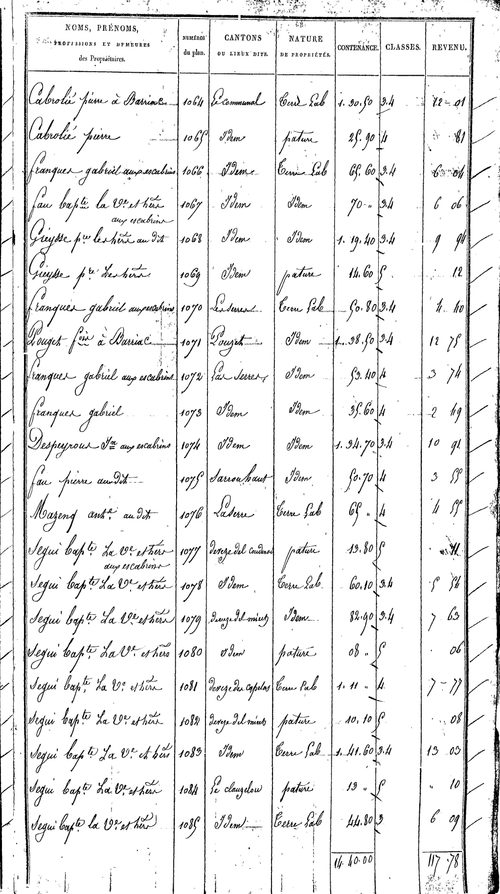 NOMS, PRÉNOMS, PROFESSIONS ET DEMEURES des Propriétaires. | NUMÉROS du plan. | CANTONS OU LIEUX DITS. | NATURE DE PROPRIÉTÉS. | CONTENANCE. | CLASSES. | REVENU.
Cabrolié pierre à Barriac 1064 Le communal Terre Lab 1. 30.50 3.4 12 01
Cabrolié pierre 1065 Idem pature 25.90 4 81
franques gabriel aux escabrins 1066 Idem Terre Lab 65.60 3.4 6 04
fau bapte la Ve et hers 1067 Idem Idem 70 " 3.4 6 06
aux escabrins
Gieysse pre les hers au dit 1068 Idem Idem 1. 19.40 3.4 9 94
Gieysse pre Les hers 1069 Idem pature 14.60 5 12
franques gabriel aux escabrins 1070 Laserre Terre Lab 50.80 3.4 4 40
Pouget à Barriac 1071 Pouget Idem 1. 38.50 3.4 12 75
franques gabriel aux escabrins 1072 Las Serres Idem 53.40 4 3 74
franques gabriel 1073 Idem Idem 35.60 4 2 49
Despeyrous aux escabrins 1074 Idem Idem 1. 34.70 3.4 10 91
fau pierre au dit 1075 Idem 50.70 4 3 55
Mazenq ante au dit 1076 Laserre Terre Lab 65 " 4 4 55
Segui bapte La Ve et hers 1077 pature 13.80 5 " 11
aux escabrins
Segui bapte La Ve et hers 1078 Idem Terre Lab 60.10 3.4 5 56
Segui bapte La Ve et hers 1079 Idem 82.90 3.4 7 63
Segui bapte La Ve et hers 1080 Idem pature 08 " 5 06
Segui bapte La Ve et hers 1081 Terre Lab 1. 11 " 4 7 77
Segui bapte La Ve et hers 1082 pature 10.10 5 08
Segui bapte La Ve et hers 1083 Idem Terre Lab 1. 41.60 3.4 13 03
Segui bapte La Ve et hers 1084 Le clauzelou pature 13 " 5 " 10
Segui bapte la Ve et hers 1085 Idem Terre Lab 44.80 3 6 09
14 40.00 117 78